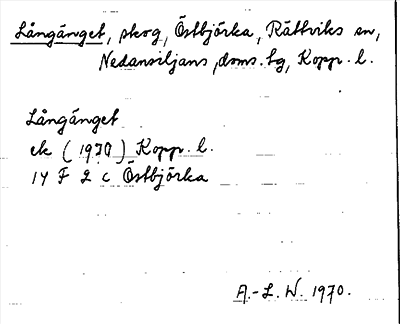 Långänget, skog, Östbjörka, Rättviks sn,
Nedansiljans doms. tg, Kopp. l.
Långänget
ek (1970) Kopp. l.
14 F 2 c Östbjörka
A.-L. W. 1970.